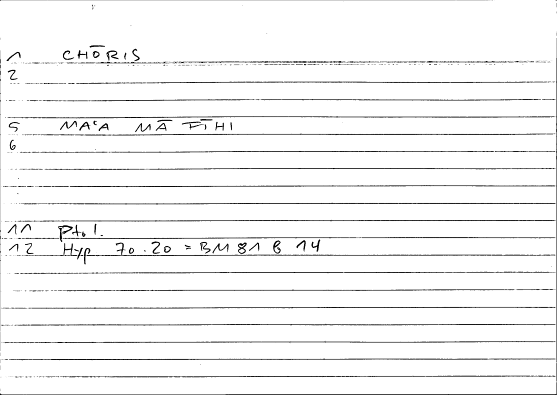 1 CHŌRIS
2
5 MAʿA MĀ FĪHI
6
11 Ptol.
12 Hyp 70.20 = BM 81 B 14